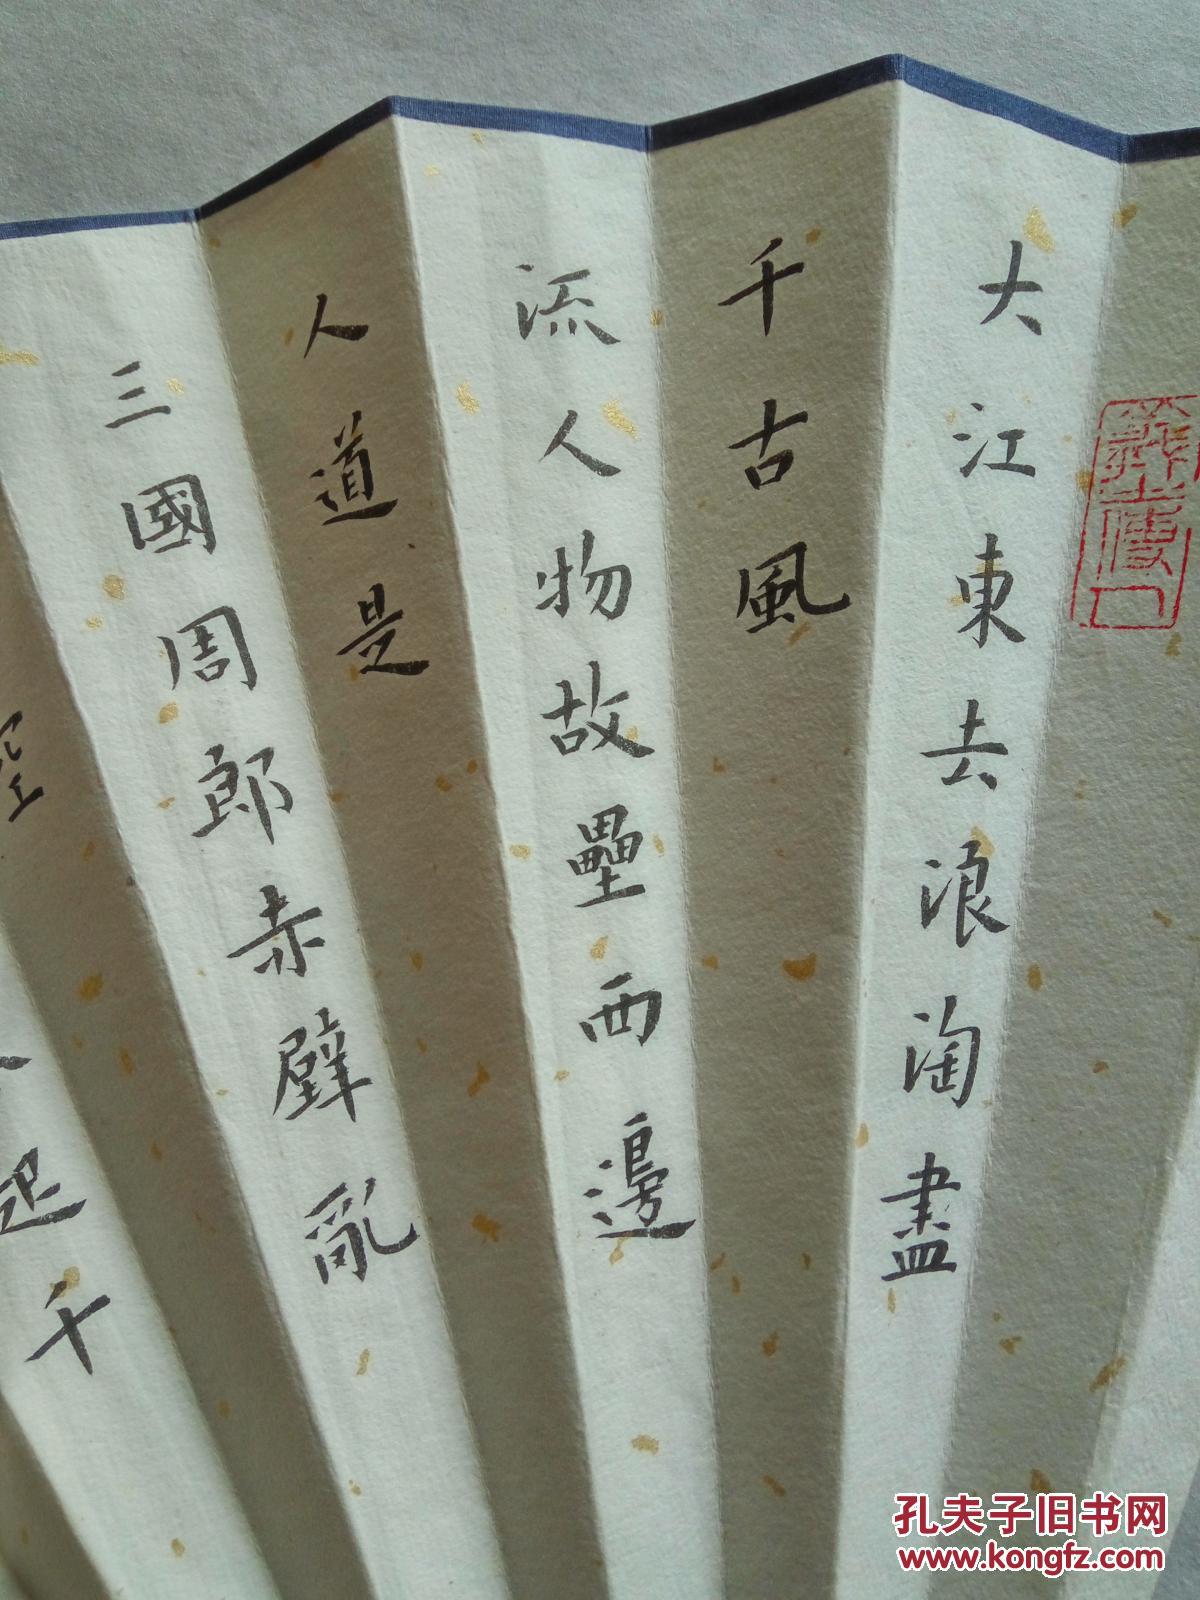 大江東去浪淘盡
千古風
流人物故壘西邊
人道是
三國周郎赤壁亂
空
起千
孔夫子旧书网
www.kongfz.com